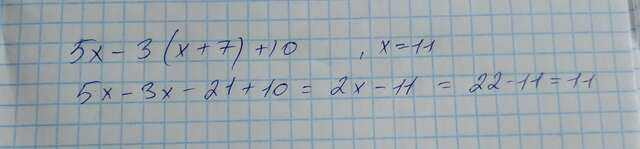 5x - 3(x+7) + 10 , x = 11
5x - 3x - 21 + 10 = 2x - 11 = 22 - 11 = 11